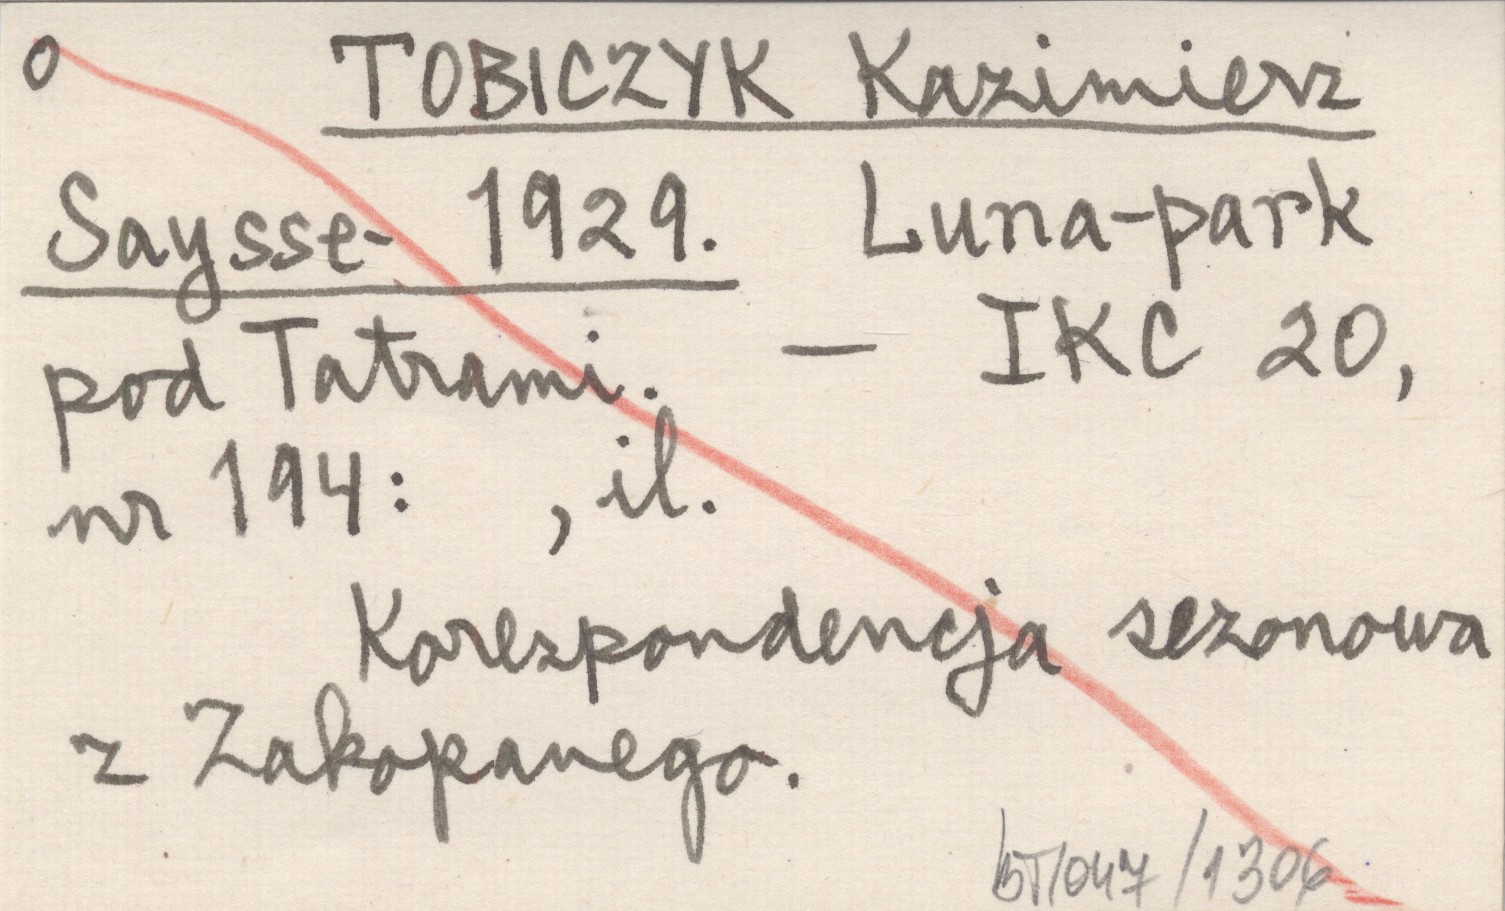 o TOBICZYK Kazimierz
Saysse- 1929. Luna-park
pod Tatrami. — IKC 20,
nr 194: , il.
Korespondencja sezonowa
z Zakopanego.
bT/047/1306